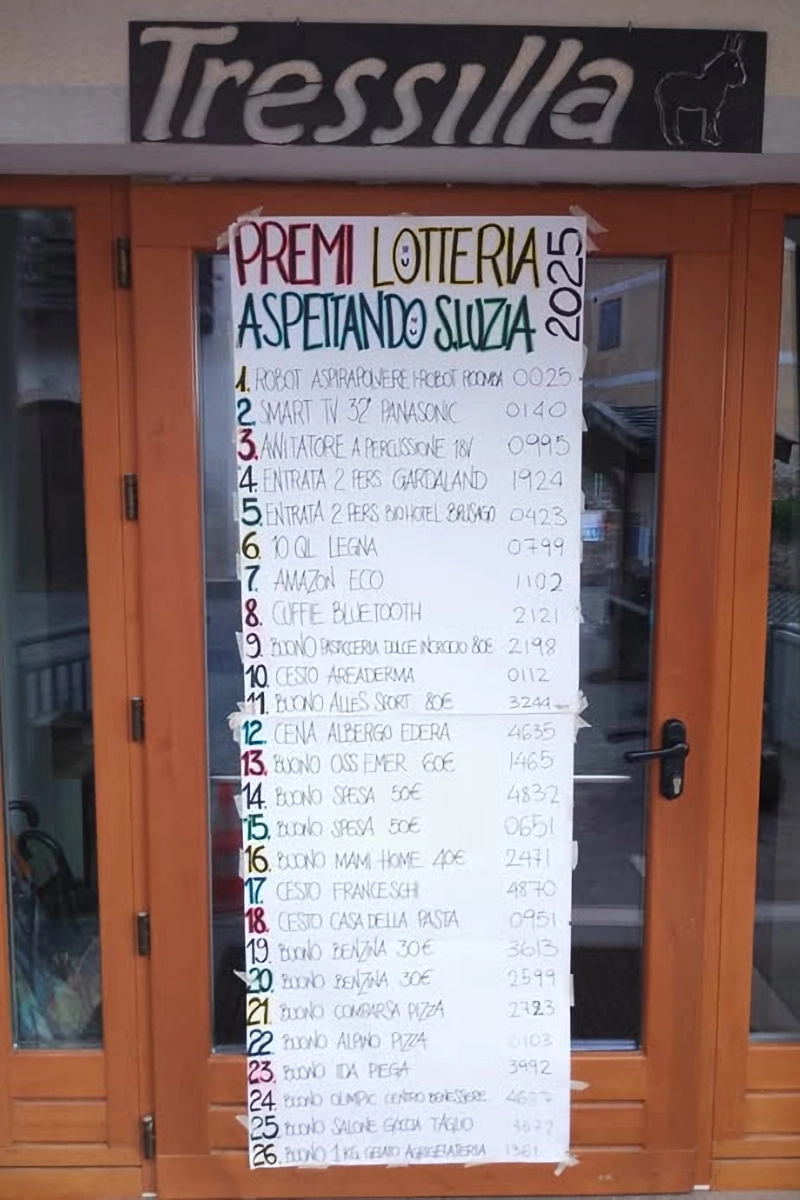 Tressilla
PREMI LOTTERIA 2025
ASPETTANDO S.LUZIA
1. ROBOT ASPIRAPOLVERE I-ROBOT ROOMBA 0025
2. SMART TV 32" PANASONIC 0140
3. AVVITATORE A PERCUSSIONE 18V 0995
4. ENTRATA 2 PERS GARDALAND 1924
5. ENTRATA 2 PERS BIOHOTEL BRUSAGO 0423
6. 10 QL LEGNA 0799
7. AMAZON ECO 1102
8. CUFFIE BLUETOOTH 2121
9. BUONO PASTICCERIA DOLCE 80€ 2198
10. CESTO AREADERMA 0112
11. BUONO ALLES SPORT 80€ 3244
12. CENA ALBERGO EDERA 4635
13. BUONO OSS EMER 60€ 1465
14. BUONO SPESA 50€ 4832
15. BUONO SPESA 50€ 0651
16. BUONO MAMI HOME 40€ 2471
17. CESTO FRANCESCHI 4870
18. CESTO CASA DELLA PASTA 0951
19. BUONO BENZINA 30€ 3613
20. BUONO BENZINA 30€ 2599
21. BUONO COMPARSA PIZZA 2723
22. BUONO ALPINO PIZZA 0103
23. BUONO IDA PIEGA 3992
24. BUONO OLIMPIC CENTRO BENESSERE
25. BUONO SALONE GOCCIA TAGLIO
26. BUONO 1 KG. GELATO AGRIGELATERIA